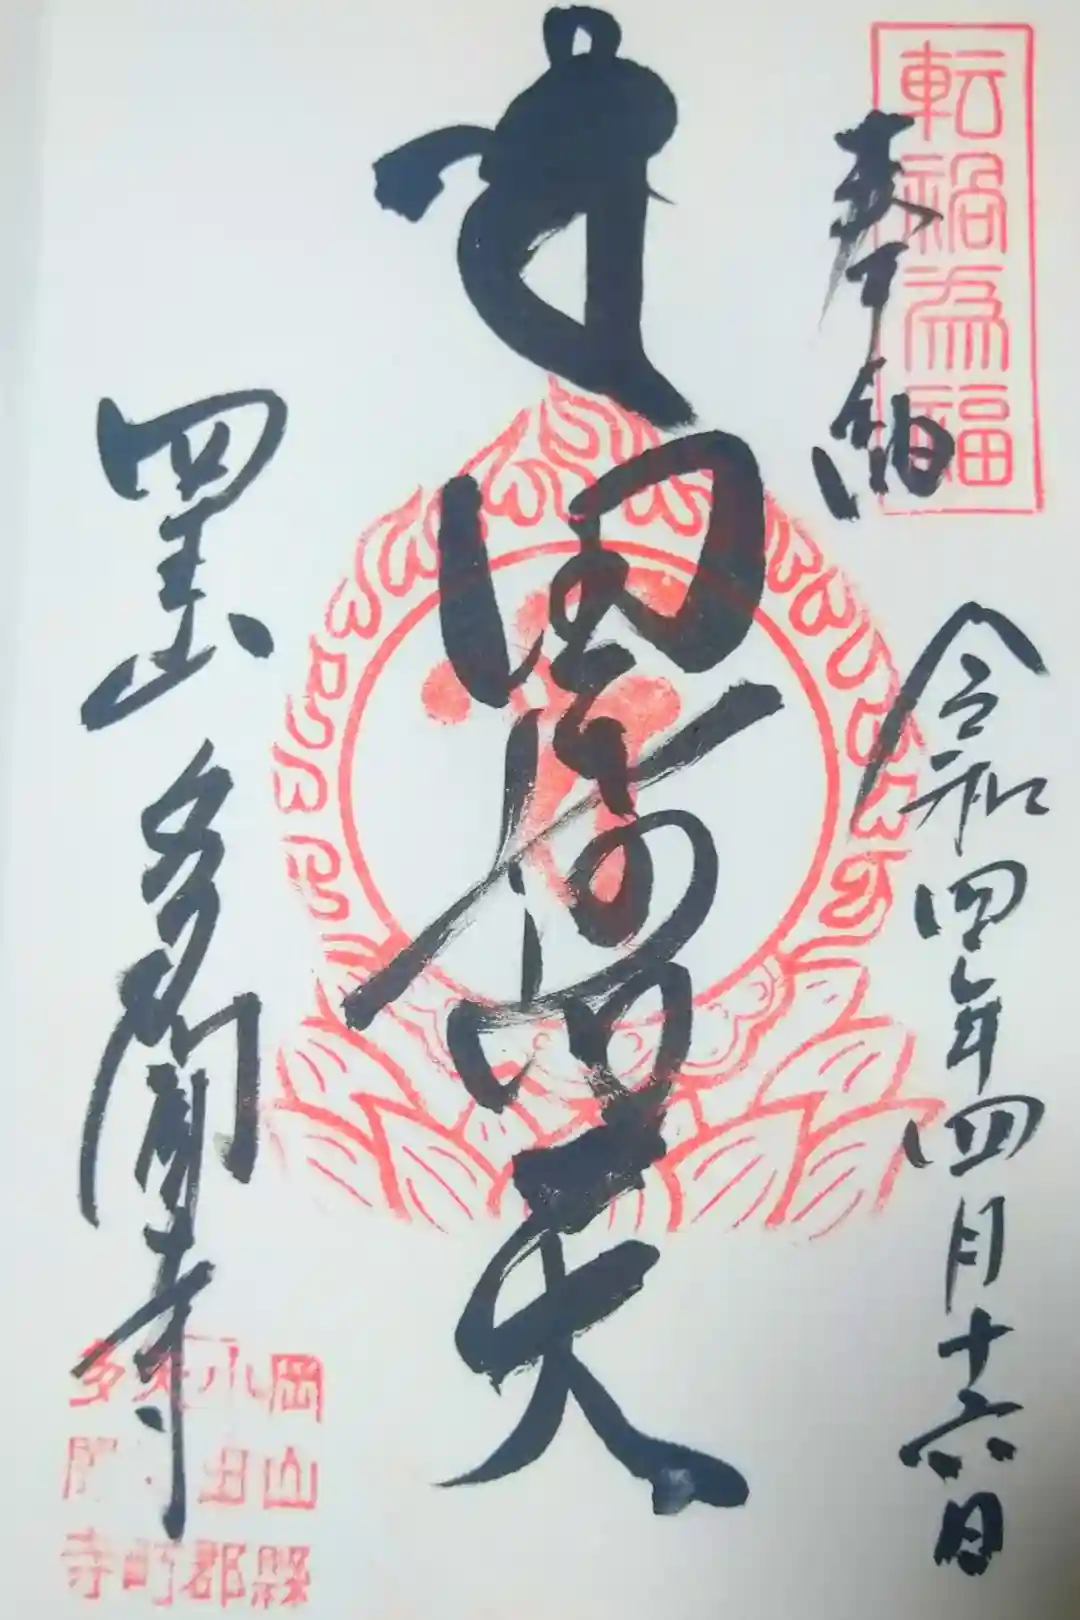 転禍為福
奉納
令和四年四月十六日
毘沙門天
四王山 多聞寺
岡山縣
小田郡
矢掛町
多聞寺